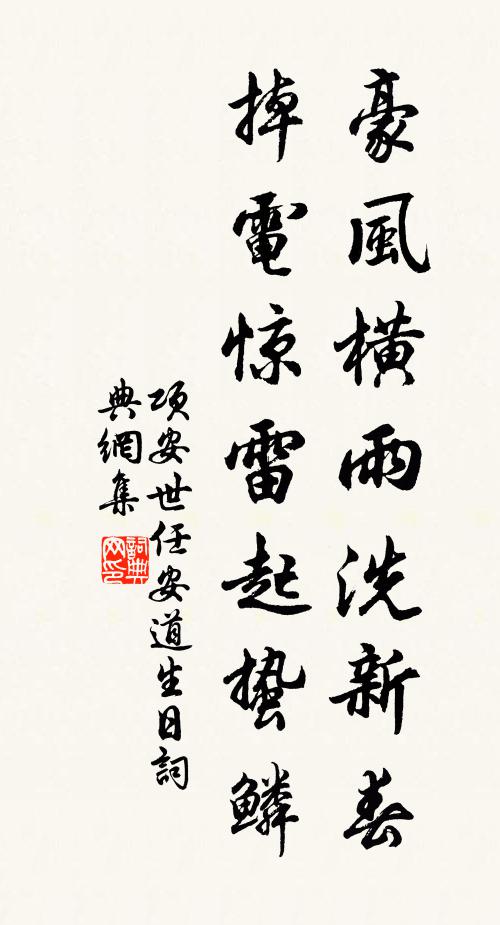 豪風橫雨洗新春
掉電惊雷起蟄鱗
項安世任安道生日詞
典網集
詞典网印